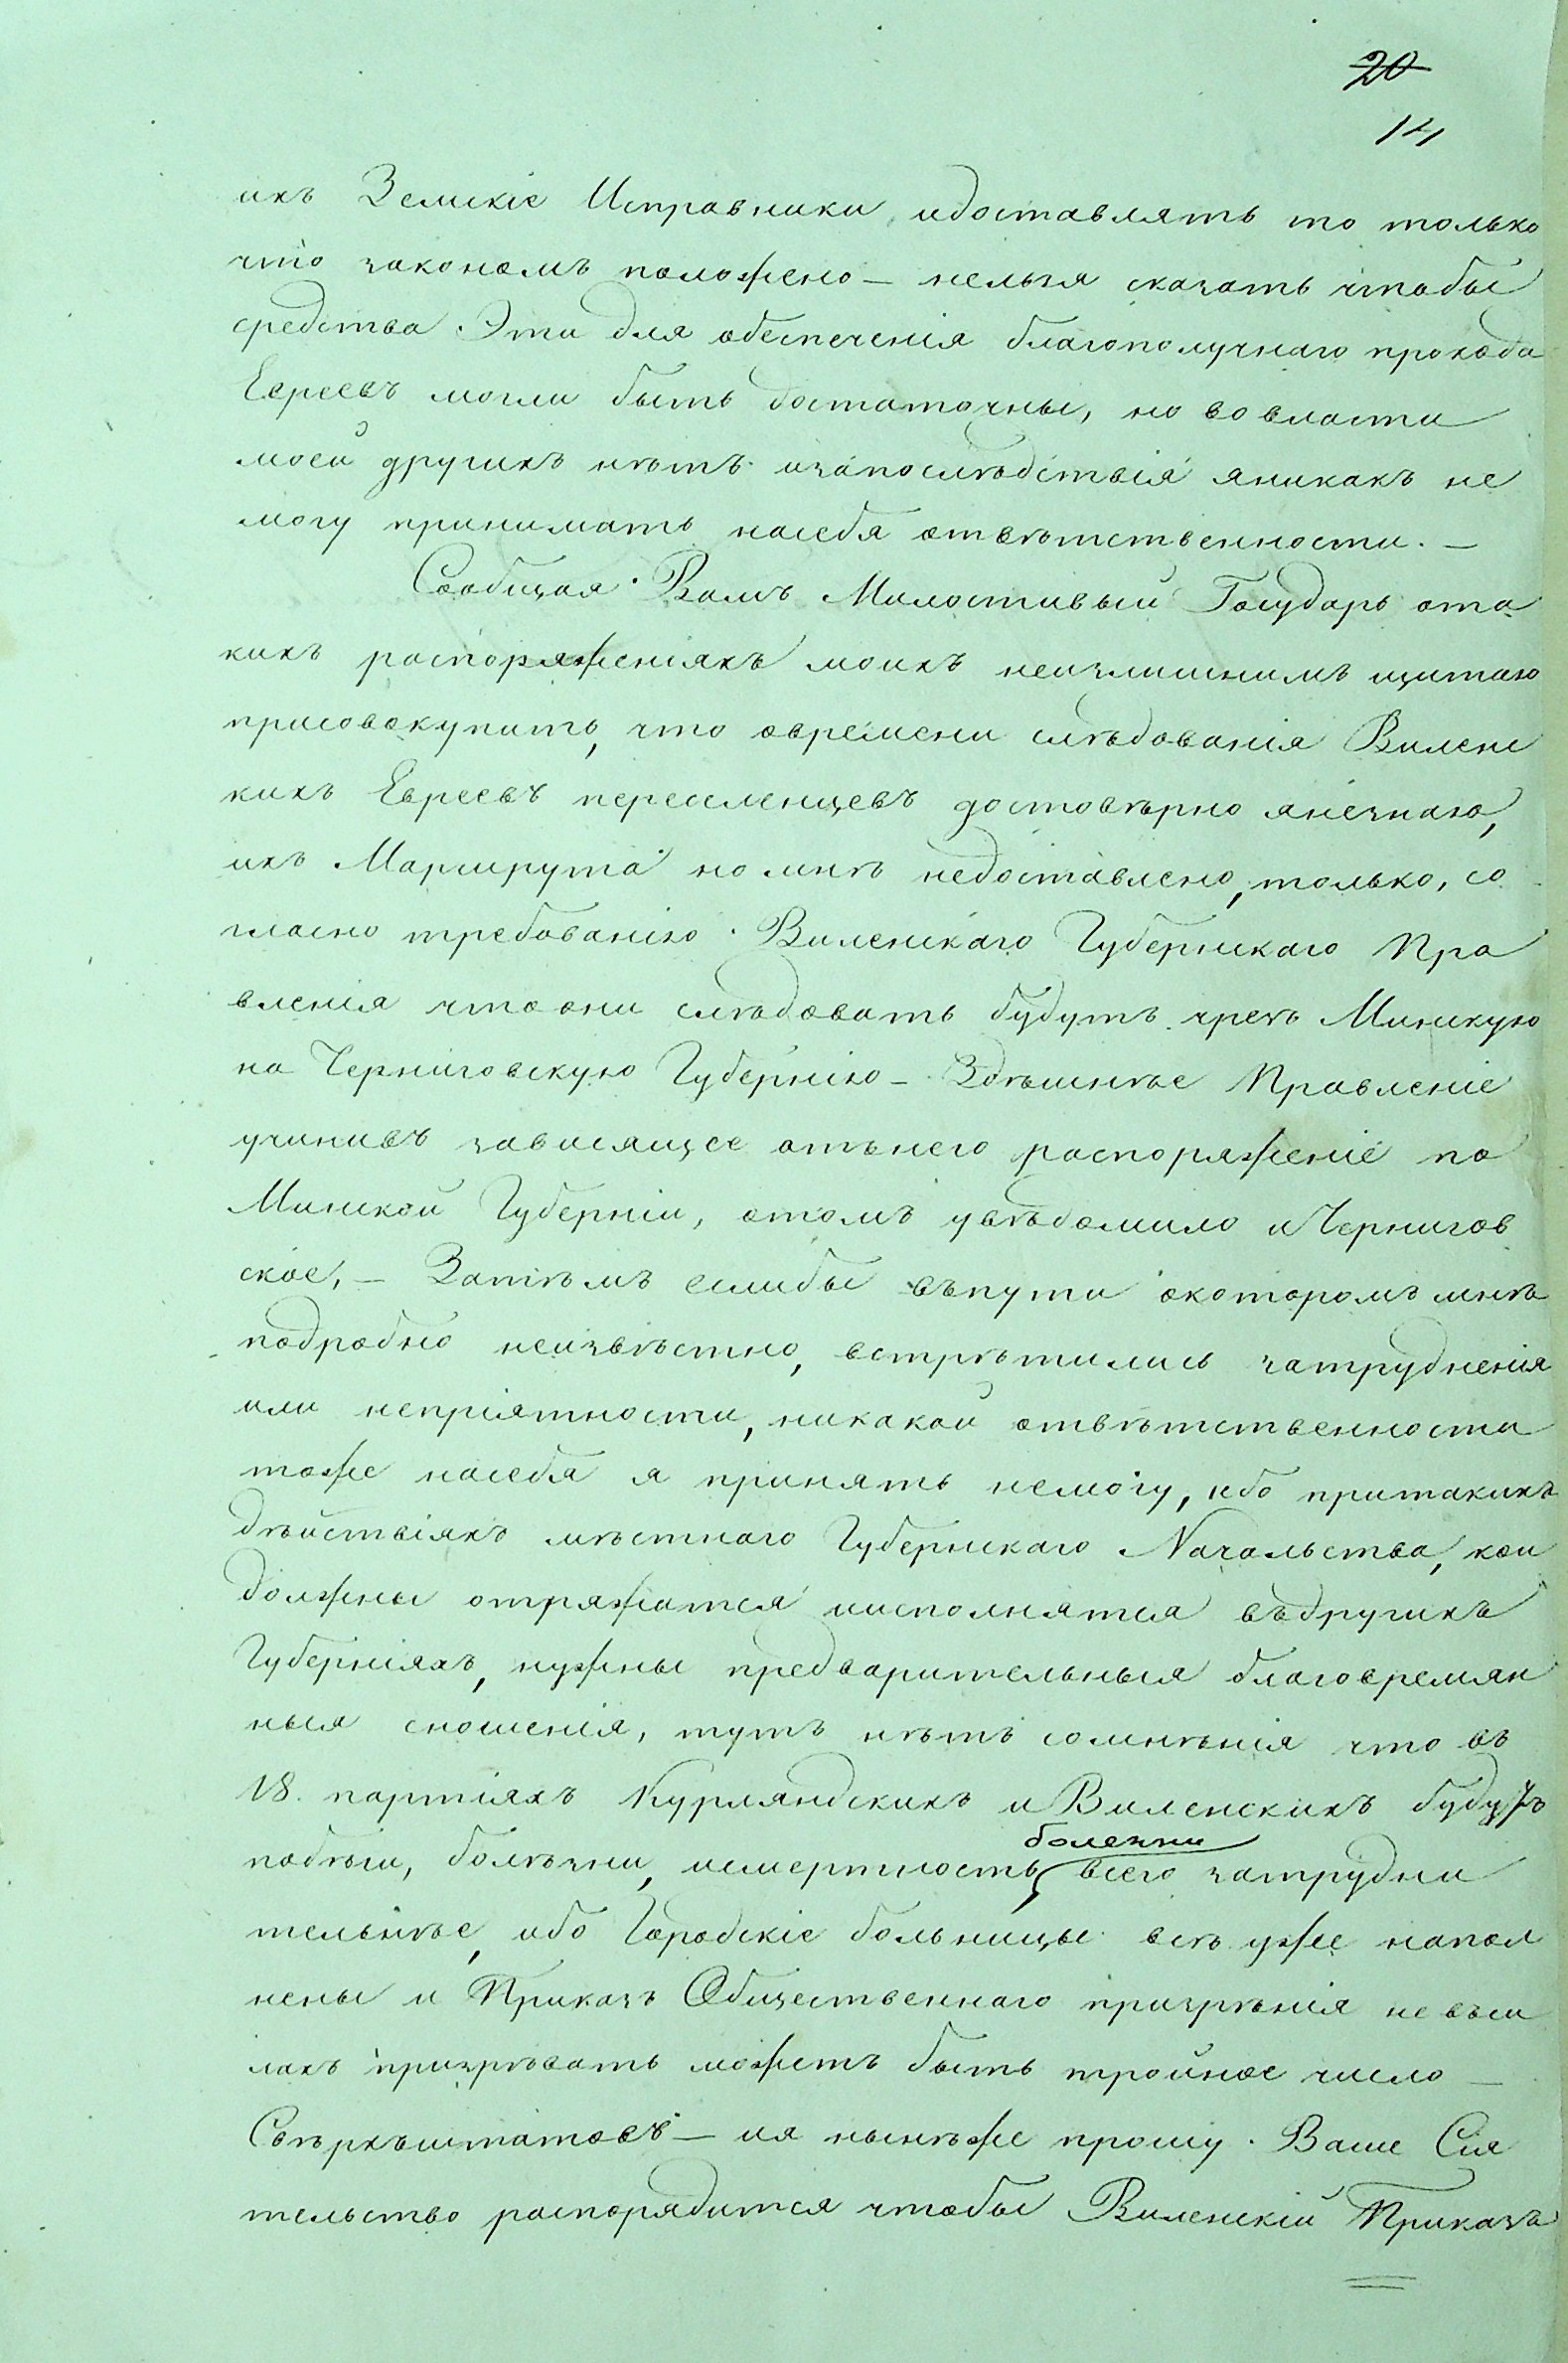 20
14
ихъ Земскіе Исправники идоставлять то только
что закономъ положено — нельзя сказать чтобы
средства Эти для обеспеченія благополучнаго прохода
Евреевъ могли быть достаточны, но во власти
моей другихъ нѣтъ изапослѣдствія яникакъ не
могу принимать насебя отвѣтственности. —
Сообщая Вамъ Милостивый Государь ота
кихъ распоряженіяхъ моихъ неизлишнимъ щитаю
присовокупить, что овремени слѣдованія Виленс
кихъ Евреевъ переселенцевъ достовѣрно янезнаю,
ихъ Маршрута ко мнѣ недоставлено, только, со
гласно требованію Виленскаго Губернскаго Пра
вленія что они слѣдовать будутъ чрезъ Минскую
на Черниговскую Губернію — Здѣшнѣе Правленіе
учинивъ зависящее отънего распоряженіе по
Минской Губерніи, отомъ увѣдомило и Чернигов
ское, — Затѣмъ еслибы въпути окоторомъ мнѣ
подробно неизвѣстно, встрѣтились затрудненія
или непріятности, никакой отвѣтственности
тоже насебя я принять немогу, ибо притакихъ
дѣйствіяхъ мѣстнаго Губернскаго Начальства, кои
должны отряжатся иисполнятся въдругихъ
Губерніяхъ, нужны предварительныя благовремян
ныя сношенія, тутъ нѣтъ сомнѣнія что въ
18. партіяхъ Курляндскихъ и Виленскихъ будутъ
побѣги, болѣзни, исмертность болезни всего затрудни
тельнѣе, ибо Городскіе больницы всѣ уже напол
нены и Приказъ Общественнаго призрѣнія не въси
лахъ призрѣвать можетъ быть тройное число —
Свѣрхъштатовъ — ия нынѣже прошу Ваше Сія
тельство распорядится чтобы Виленскій Приказъ